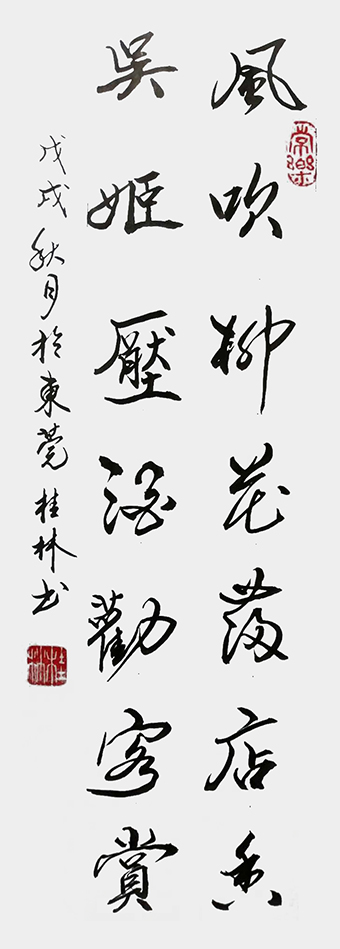 風吹柳花發店香
吳姬壓酒勸客賞
戊戌秋月於東莞桂林书
常樂
桂林